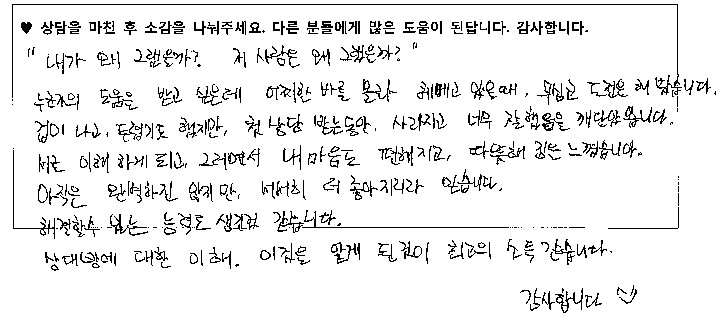 ♥ 상담을 마친 후 소감을 나눠주세요. 다른 분들에게 많은 도움이 된답니다. 감사합니다.
"내가 왜 그랬을까? 저 사람은 왜 그랬을까?"
누군가의 도움은 받고 싶은데 어찌할 바를 몰라 헤메고 있을때, 무심코 도전을 해 봤습니다.
겁이 나고, 두렵기도 했지만, 첫 상담 받는동안, 사라지고 너무 잘했음을 깨달았습니다.
서로 이해하게 되고, 그러면서 내마음도 편해지고, 따뜻해 짐을 느꼈습니다.
아직은 완벽하진 않지만, 서서히 더 좋아지리라 믿습니다.
해결할수 있는 능력도 생긴것 같습니다.
상대방에 대한 이해. 이점을 알게 된것이 최고의 소득 같습니다.
감사합니다